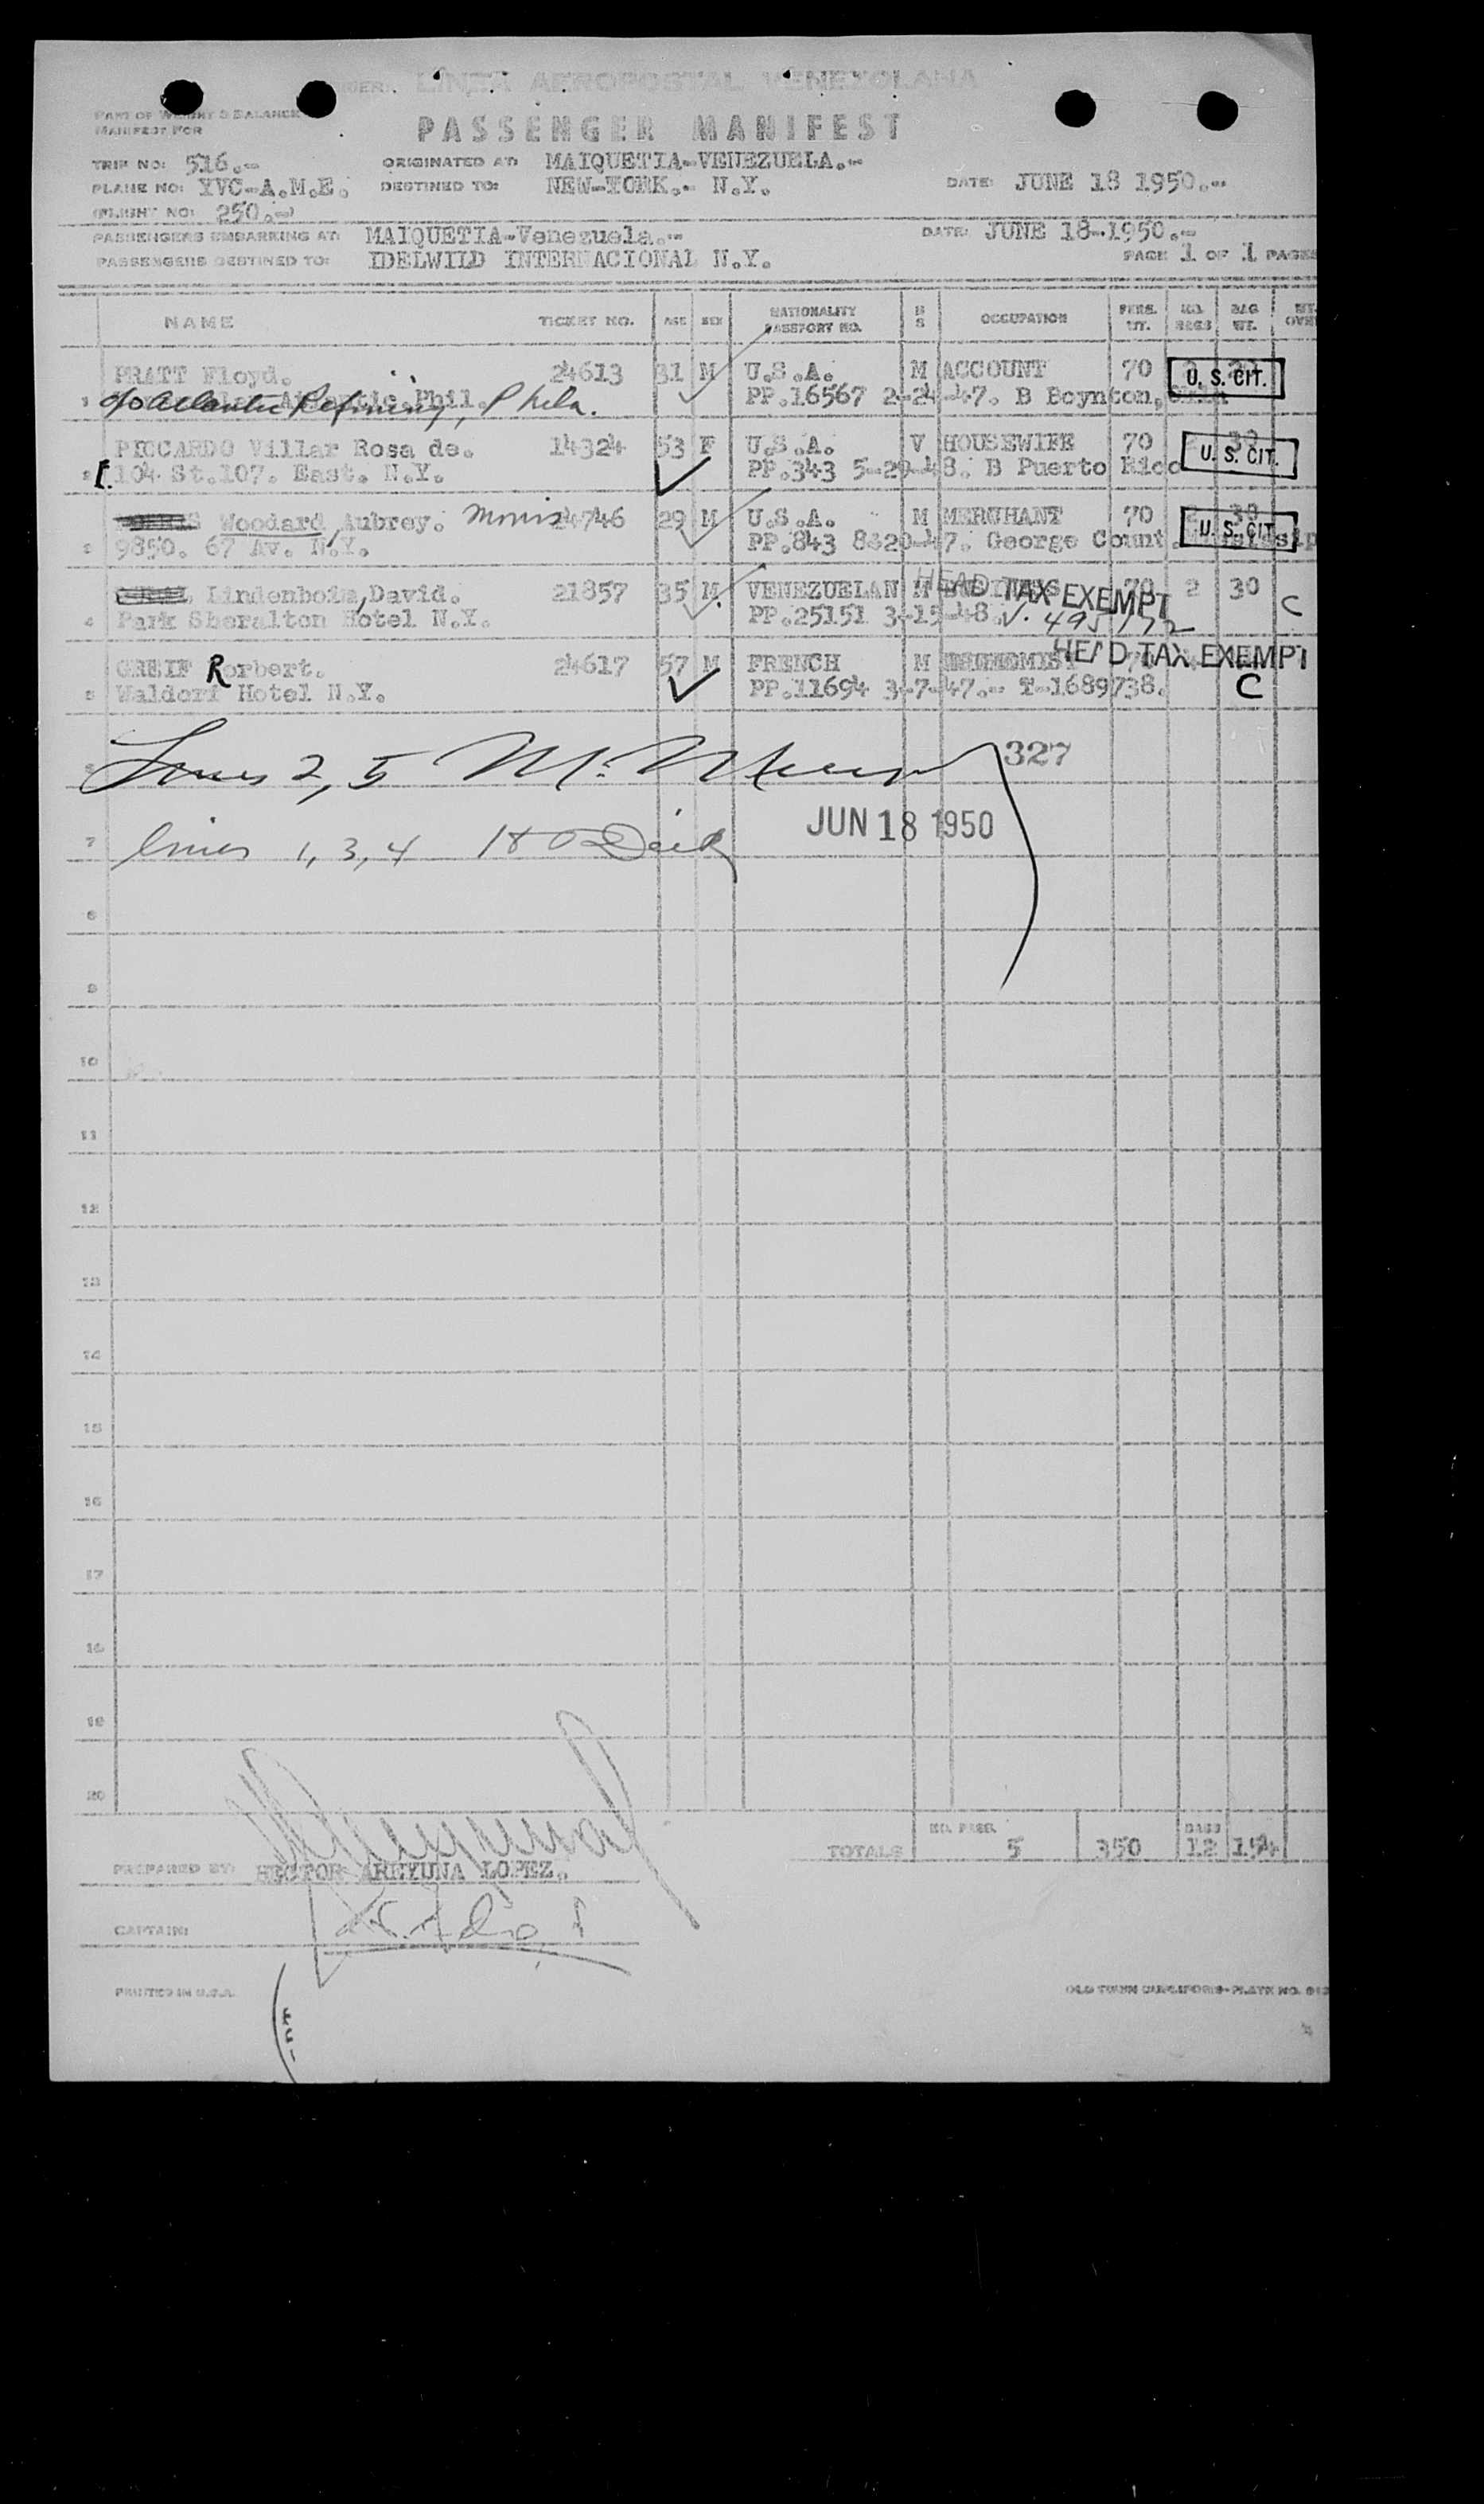 LINEA AEROPOSTAL VENEZOLANA
PART OF WEIGHT & BALANCE
MANIFEST FOR
PASSENGER MANIFEST
TRIP NO: 516.- ORIGINATED AT: MAIQUETIA-VENEZUELA.-
PLANE NO: YVC-A.M.E. DESTINED TO: NEW-YORK.- N.Y. DATE: JUNE 18 1950.-
(FLIGHT NO: 250.-)
PASSENGERS EMBARKING AT: MAIQUETIA-Venezuela.- DATE: JUNE 18-1950.-
PASSENGERS DESTINED TO: IDELWILD INTERNACIONAL N.Y. PAGE 1 OF 1 PAGES
NAME TICKET NO. AGE SEX NATIONALITY PASSPORT NO. OCCUPATION PERS. WT. NO. BAGS BAG WT.
PRATT Floyd. 24613 31 M U.S.A. M ACCOUNT 70 U. S. CIT.
1 c/o Atlantic Refining, Phila. PP.16567 2-24-47. B Boynton,
PICCARDO Villar Rosa de. 14324 53 F U.S.A. V HOUSEWIFE 70 30
2 104 St.107. East. N.Y. PP.343 5-29-48. B Puerto Rico U. S. CIT.
Woodard Aubrey. Morris 24746 29 M U.S.A. M MERCHANT 70 2 30
3 9850. 67 Av. N.Y. PP.843 8-20-47. George Count. U. S. CIT.
Lindenboim, David. 21857 35 M VENEZUELAN M HEAD TAX EXEMPT 70 2 30 C
4 Park Sheralton Hotel N.Y. PP.25151 3-15-48 V. 495/72
GREIF Rorbert. 24617 57 M FRENCH M HEAD TAX EXEMPT
5 Waldorf Hotel N.Y. PP.11694 3-7-47.- T-1689738. C
6 Lines 2, 5 327
JUN 18 1950
7 lines 1, 3, 4
8
9
10
11
12
13
14
15
16
17
18
19
20
TOTALS NO. PASS. 5 350 BAGS 12 154
PREPARED BY: HECTOR AREYUNA LOPEZ.
CAPTAIN:
PRINTED IN U.S.A.